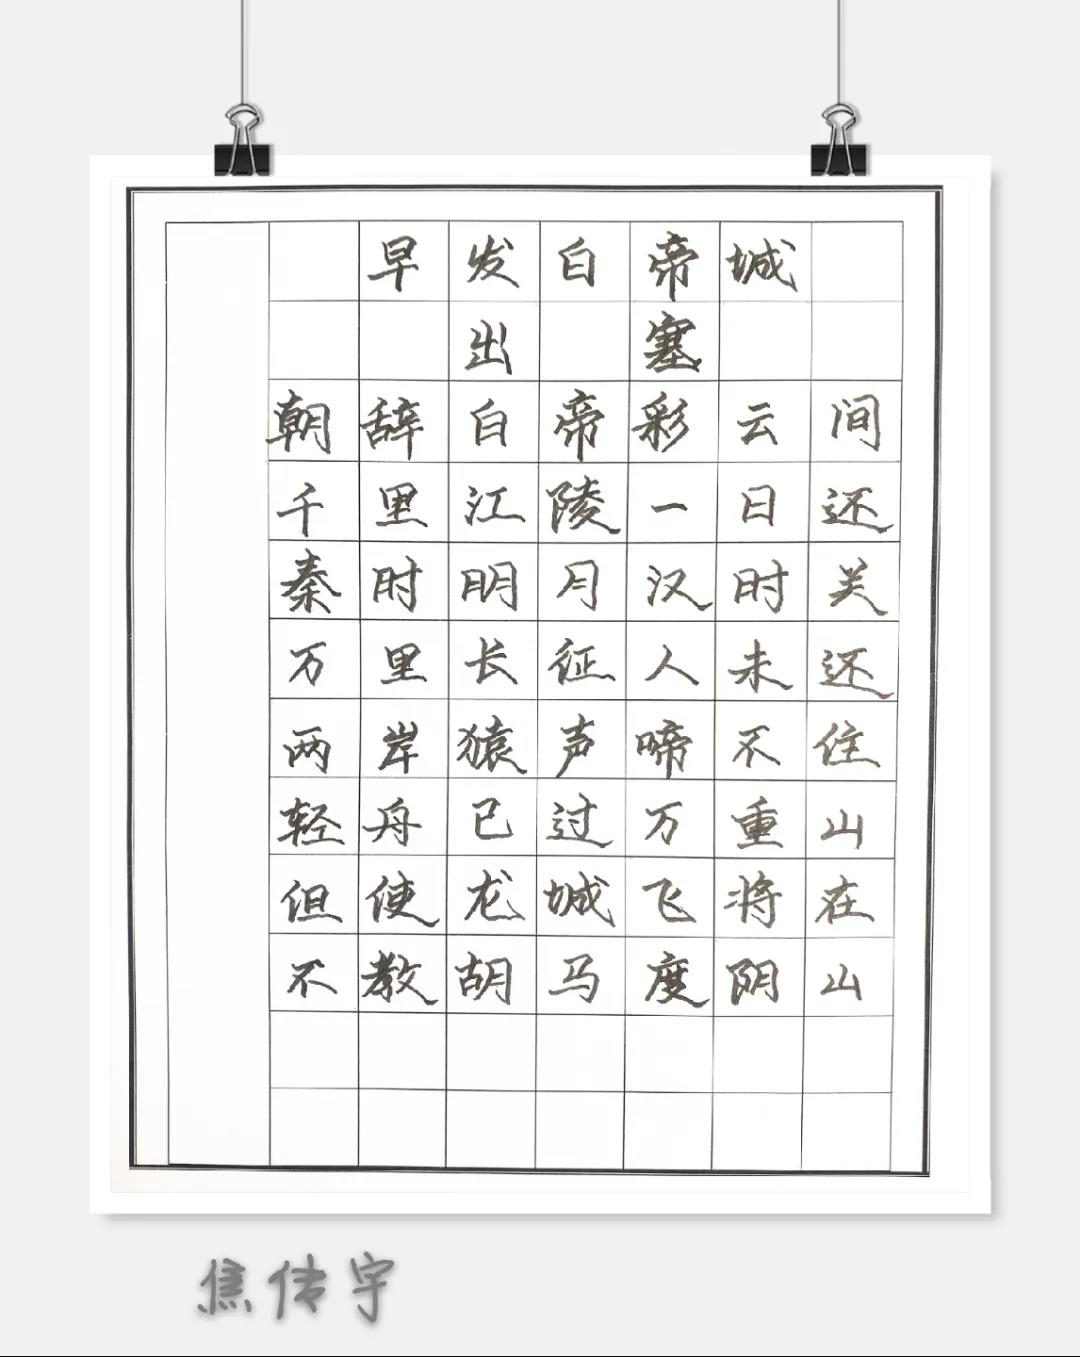 早发白帝城
出塞
朝辞白帝彩云间
千里江陵一日还
秦时明月汉时关
万里长征人未还
两岸猿声啼不住
轻舟已过万重山
但使龙城飞将在
不教胡马度阴山
焦传宇